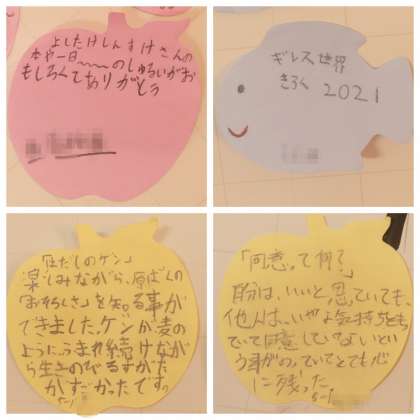 よしたけしんすけさんの
本や一日〜〜〜のしゅるいがお
もしろくてありがとう
ギレス世界
きろく 2021
「はだしのゲン」
楽しみながら、原ばくの
「おそろしさ」を知る事が
できました。ゲンが麦の
ようにふまれ続けなが
ら生きのびるすがた
がすごかったです。
5-1
「同意」って何?
自分は、いいと思っていても、
他人は、いやな気持ちをも
っていて同意していないとい
う事がのっていてとても心
に残った。
5-1